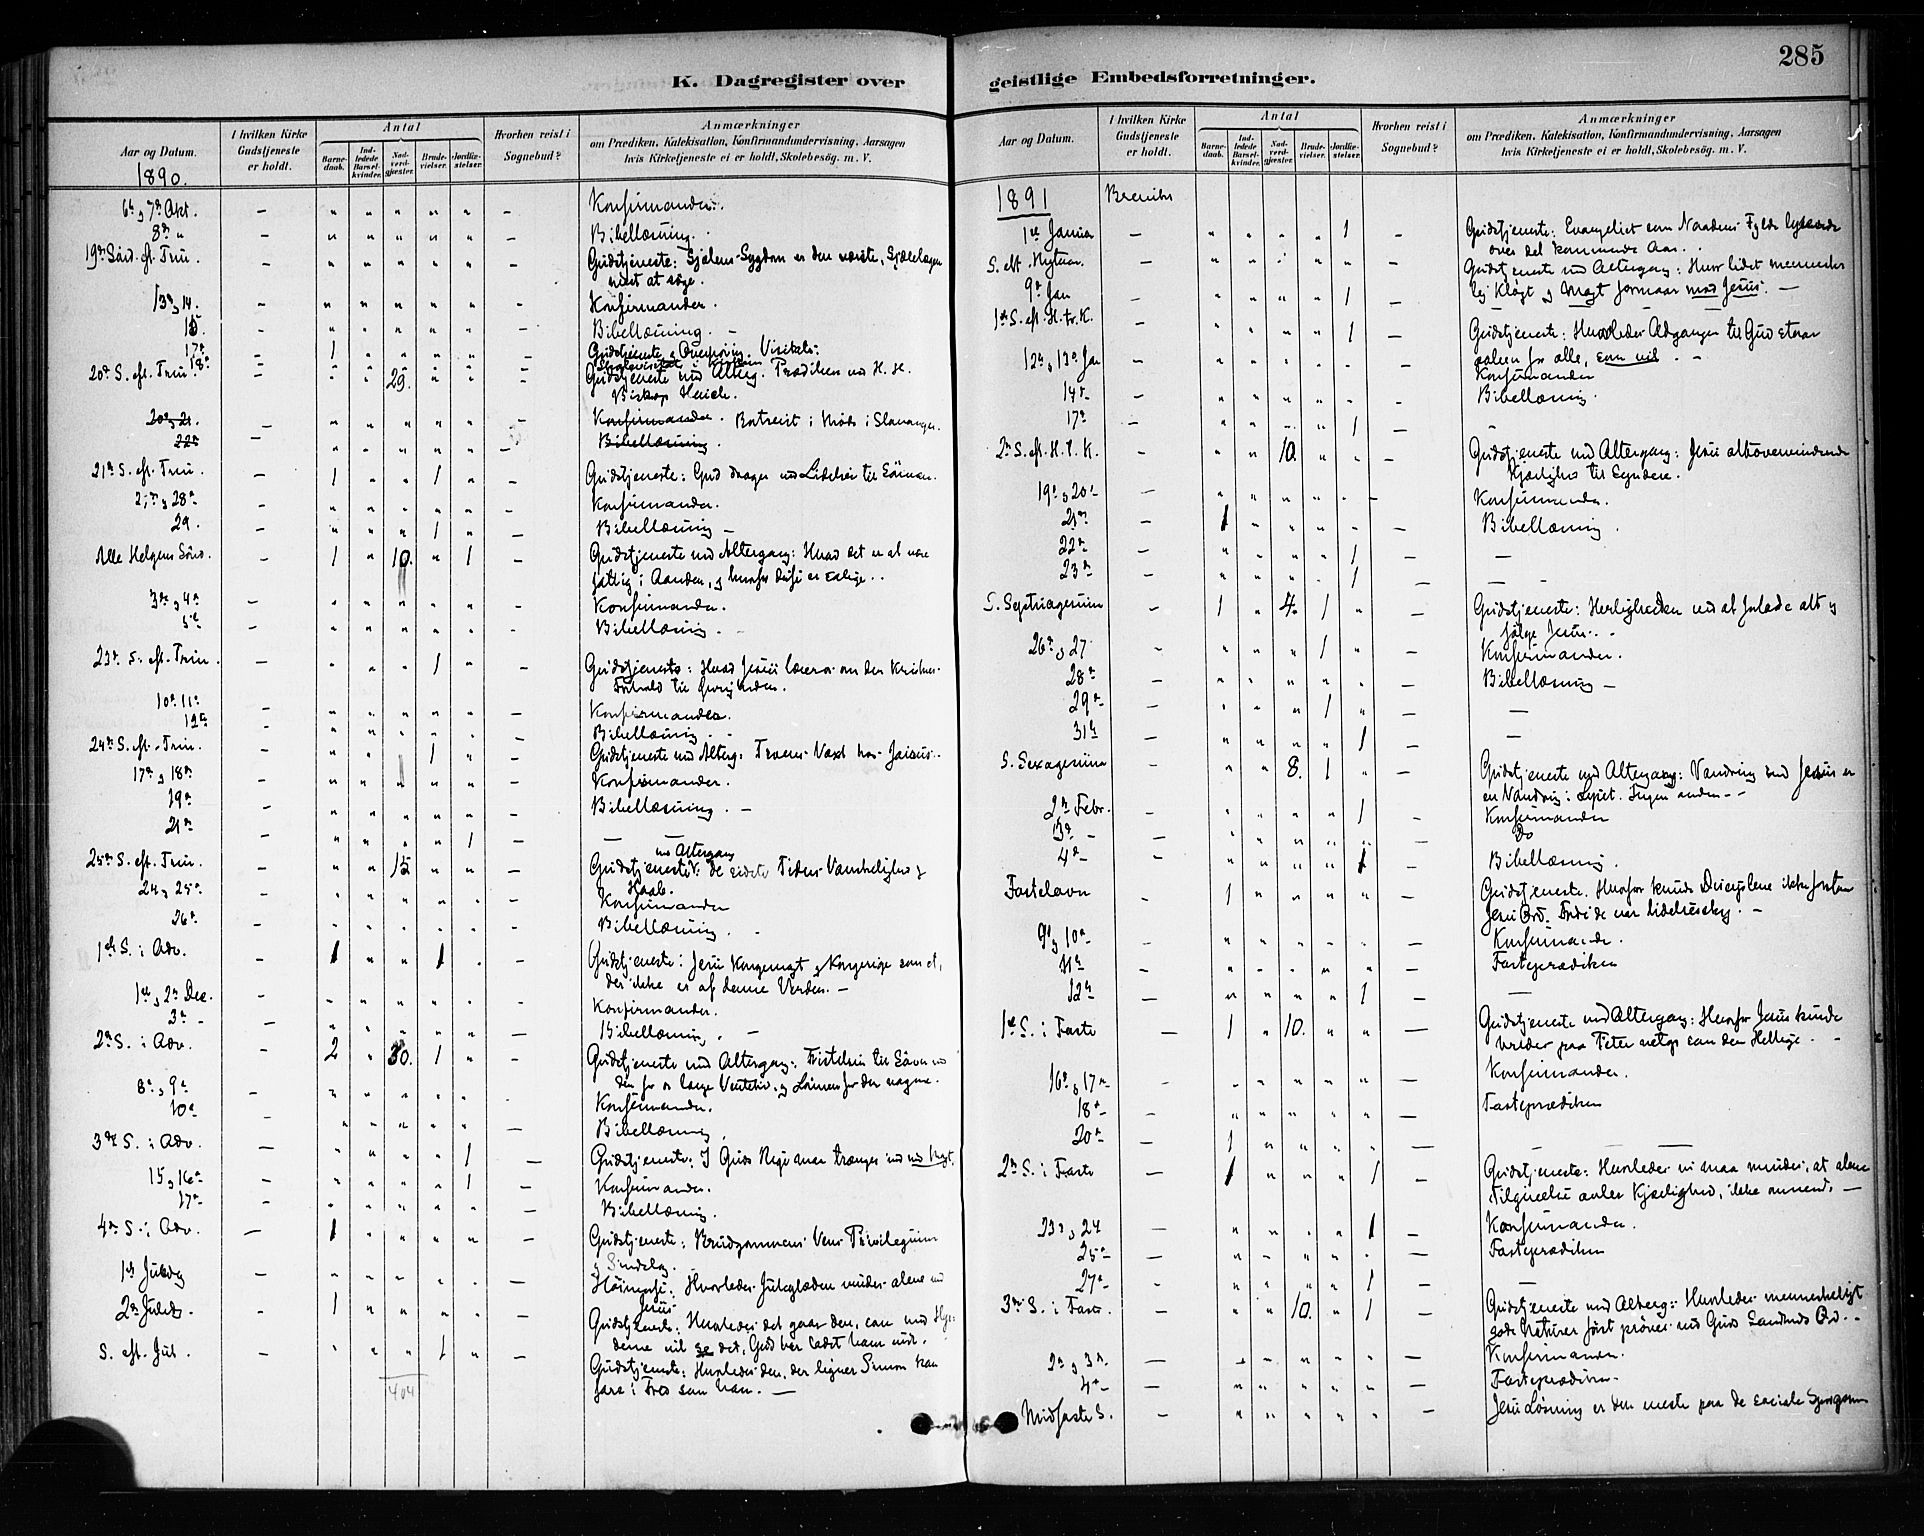 285
K. Dagregister over
geistlige Embedsforretninger.
Aar og Datum.
I hvilken Kirke Gudstjeneste er holdt.
Antal
Barnedaab.
Indledede Barselkvinder.
Nadverdgjæster.
Brudevielser.
Jordfæstelser.
Hvorhen reist i Sognebud?
Anmærkninger
om Prædiken, Katekisation, Konfirmandundervisning, Aarsagen
hvis Kirketjeneste ei er holdt, Skolebesög. m. V.
1890.
6te, 7de Okt. — " " " " " — Konfirmander.
8de " — " " " " " — Bibellæsning.
19de Sönd. ef. Trin. — " " " " " — Gudstjeneste: Sjælens Sygdom er den værste, Sjælelægen
mest at söge.
13de, 14. — " " " " " — Konfirmander.
15. — " " " " " — Bibellæsning. —
17de — 1 " " " " — Gudstjeneste
18de
20de S. ef. Trin. — " " 29. " " — Gudstjeneste med Alterg. Prædiken ved H. H.
Biskop Heuch.
20de, 21. — " " " " " — Konfirmander. i Stavanger.
22de — " " " " " — Bibellæsning.
21de S. ef. Trin. — 1 " " 1 " — Gudstjeneste: Gud drager med Lidelser til Sönnen.
27de, 28de — " " " " " — Konfirmander.
29. — " " " 1 " — Bibellæsning —
Alle Helgens Sönd. — 1 " 10. " 1 — Gudstjeneste med Altergang: Hvad det er at være
fattig i Aanden, og hvorfor disse er salige.
3de, 4de — " " " " " — Konfirmander.
5te — " " " " " — Bibellæsning.
23de S. ef. Trin. — " " " 1 " — Gudstjeneste: Hvad Jesus lærer om den Kristnes
Forhold til Övrigheden.
10de 11te — " " " " " — Konfirmander.
12te — " " " " " — Bibellæsning.
24de S. ef. Trin. — " " 1 " — Gudstjeneste med Alterg: Troens Vaxt hos Jairus.
17de, 18de — " " " " " — Konfirmander.
19de — " " " " " — Bibellæsning. —
21de — " " " " 1 —
med Altergang
25de S. ef. Trin. — " " 15 " " — Gudstjeneste: de sidste Tiders
Haab.
24, 25de " " " " " — Konfirmander
26de — " " " " " — Bibellæsning.
1ste S. i Adv. — 1 " " 1 " — Gudstjeneste: Jesu Kongemagt og Kongerige som et,
der ikke er af denne Verden. —
1ste, 2den Dec. " " " " " — Konfirmander.
3de — " " " " " — Bibellæsning. —
2den S. i Adv. — 2 " 30. 1 " — Gudstjeneste med Altergang:
8de, 9de — " " " " " — Konfirmander.
10de " " " " " — Bibellæsning
3die S. i Adv. — " " " " 1 — Gudstjeneste: I Guds Rige maa trænges ind med Magt.
15, 16de — " " " " 1 — Konfirmander.
17de — " " " " " Bibellæsning.
4de S. i Adv. — 1 " " " " — Gudstjeneste: Brudgommens Vens Privilegium
og Sindelag.
1ste Juledag — " " " " " — Höimesse: Hvorledes Juleglæden vindes alene ved
Jesus
2den Juled. — 1 " " " " — Gudstjeneste: Hvorledes det gaar den, som med
vil se det, Gud har ladet ham
S. ef. Jul. — " " " 1 " — Gudstjeneste: Hvorledes den, der ligner Simon kan
fare i Fred som han. —
404
Aar og Datum.
I hvilken Kirke Gudstjeneste er holdt.
Antal
Barnedaab.
Indledede Barselkvinder.
Nadverdgjæster.
Brudevielser.
Jordfæstelser.
Hvorhen reist i Sognebud?
Anmærkninger
om Prædiken, Katekisation, Konfirmandundervisning, Aarsagen
hvis Kirketjeneste ei er holdt, Skolebesög. m. V.
1891
1ste Januar — " " " " 1 — Gudstjeneste: Evangeliet om Naadens Fylde
over det kommende Aar.
S. eft. Nytaar. — " " " " " — Gudstjeneste med Altergang: Hvor lidet menneske-
lig Kløgt og Magt formaar mod Jesus. —
9de Jan — " " " " 1 —
1ste S. ef. H. tr. K. — " " " " 1 — Gudstjeneste: Hvorledes Adgangen til Gud staar
aaben for alle, som vil. —
12te, 13de Jan — " " " " " — Konfirmander
14de — " " " " " — Bibellæsning.
17de — " " " " 1 —
2den S. ef. H. t. K. — " " 10. " " — Gudstjeneste med Altergang: Jesu altovervindende
Kjærlighed til Syndere.
19de, 20de — " " " " " — Konfirmander.
21de — 1 " " " " — Bibellæsning.
22de — " " " " 1 — —
23de — " " " " 1 — —
S. Septuagesima — 1 " 4. 1 " — Gudstjeneste: Herligheden ved at forlade alt og
følge Jesus.
26de, 27 — " " " 1 " — Konfirmander.
28de — " " " " " — Bibellæsning —
29de — " " " 1 " — —
31te — " " " " 1 — —
S. Sexagesima — " " 8. 1 " — Gudstjeneste med Altergang: Vandring med Jesus er
en Vandring i Lyset. Ingen anden —
2den Febr. — " " " " 1 — Konfirmander
3de — — " " " " " — Do
4de — — " " " " 1 — Bibellæsning.
Fastelavn — 1 " " " " — Gudstjeneste. Hvorfor kunde Disciplene ikke forstaa
Jesu Ord. Fordi de var lidelsessky. —
9de, 10de — " " " " " — Konfirmander.
11te — " " " " " — Fasteprædiken
12te — " " " " 1 — —
1ste S. i Faste — 1 " 10. " " — Gudstjeneste med Altergang: Hvorfor Jesus kunde
netop som den Hellige. —
16de, 17de — — " " " " " — Konfirmander.
18de — — " " " " " — Fasteprædiken
20de — — 1 " " " " — —
2den S. i Faste — 1 " " " 1 — Gudstjeneste: Hvorledes vi maa mindes, at alene
Tilgivelse avler Kjærlighed, ikke omvendt. —
23de, 24 — " " " " 1 — Konfirmander.
25de — — " " " " " — Fasteprædiken
27de — — " " " " 1 — —
3die S. i Faste. — " " 10. " 1 — Gudstjeneste med Alterg: Hvorledes menneskeligt
gode Naturer først prøves ved Guds Sandheds Ord.
2den, 3de. — " " " " " — Konfirmander.
4de — — " " " " " — Fasteprædiken.
Midfaste S. — " " " " " — Jesu Løsning er den eneste paa de sociale